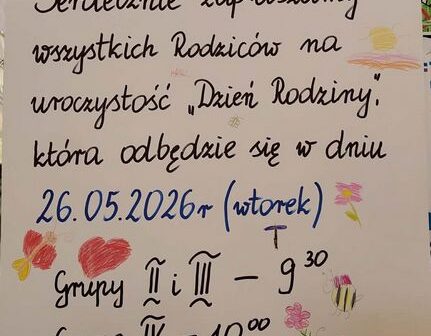 Serdecznie zapraszamy
wszystkich Rodziców na
uroczystość „Dzień Rodziny",
która odbędzie się w dniu
26.05.2026r (wtorek)
Grupy II i III – 9³⁰
IV – 10⁰⁰